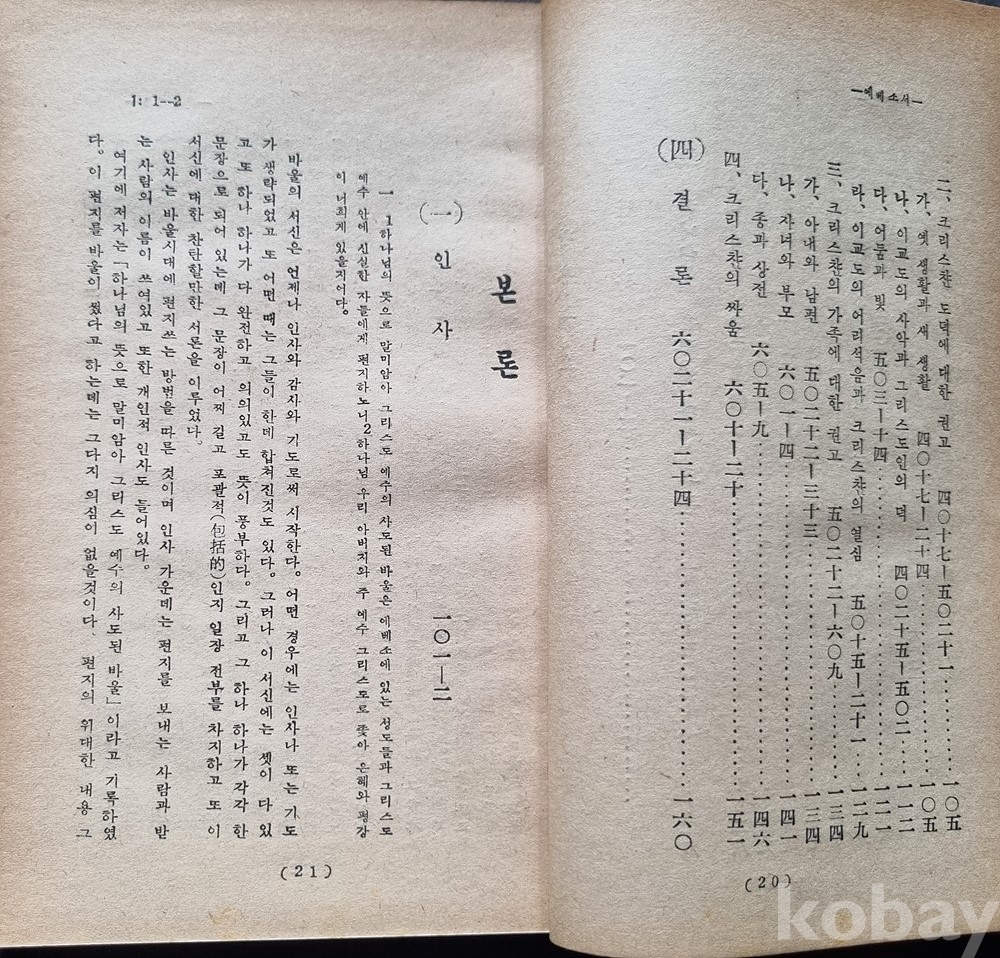 —에베소서—
二、크리스챤 도덕에 대한 권고 四〇十七—五〇二十一 一〇五
가、옛 생활과 새 생활 四〇十七—二十四 一〇五
나、이교도의 사악과 그리스도인의 덕 四〇二十五—五〇二 一一二
다、어둠과 빛 五〇三—十四 一二一
라、이교도의 어리석음과 크리스챤의 열심 五〇十五—二十一 一二九
三、크리스챤의 가족에 대한 권고 五〇二十二—六〇九 一三四
가、아내와 남편 五〇二十二—三十三 一三四
나、자녀와 부모 六〇一—四 一四一
다、종과 상전 六〇五—九 一四六
四、크리스챤의 싸움 六〇十—二十 一五一
(四) 결론 六〇二十一—二十四 一六〇
(20)
1: 1--2
본론
(一) 인사 一〇一—二
一 1하나님의 뜻으로 말미암아 그리스도 예수의 사도된 바울은 에베소에 있는 성도들과 그리스도
예수 안에 신실한 자들에게 편지하노니2하나님 우리 아버지와 주 예수 그리스도로 좇아 은혜와 평강
이 너희게 있을지어다。
바울의 서신은 언제나 인사와 감사와 기도로써 시작한다。어떤 경우에는 인사나 또는 기도
가 생략되었고 또 어떤 때는 그들이 한데 합쳐진것도 있다。그러나 이 서신에는 셋이 다 있
고 또 하나 하나가 다 완전하고 의의있고도 뜻이 풍부하다。그리고 그 하나 하나가 각각 한
문장으로 되어 있는데 그 문장이 어찌 길고 포괄적(包括的)인지 일장 전부를 차지하고 또 이
서신에 대한 찬탄할만한 서론을 이루었다。
인사는 바울시대에 편지쓰는 방법을 따른 것이며 인사 가운데는 편지를 보내는 사람과 받
는 사람의 이름이 쓰여있고 또한 개인적 인사도 들어있다。
여기에 저자는「하나님의 뜻으로 말미암아 그리스도 예수의 사도된 바울」이라고 기록하였
다。이 편지를 바울이 썼다고 하는데는 그다지 의심이 없을것이다、편지의 위대한 내용 그
(21)
kobay